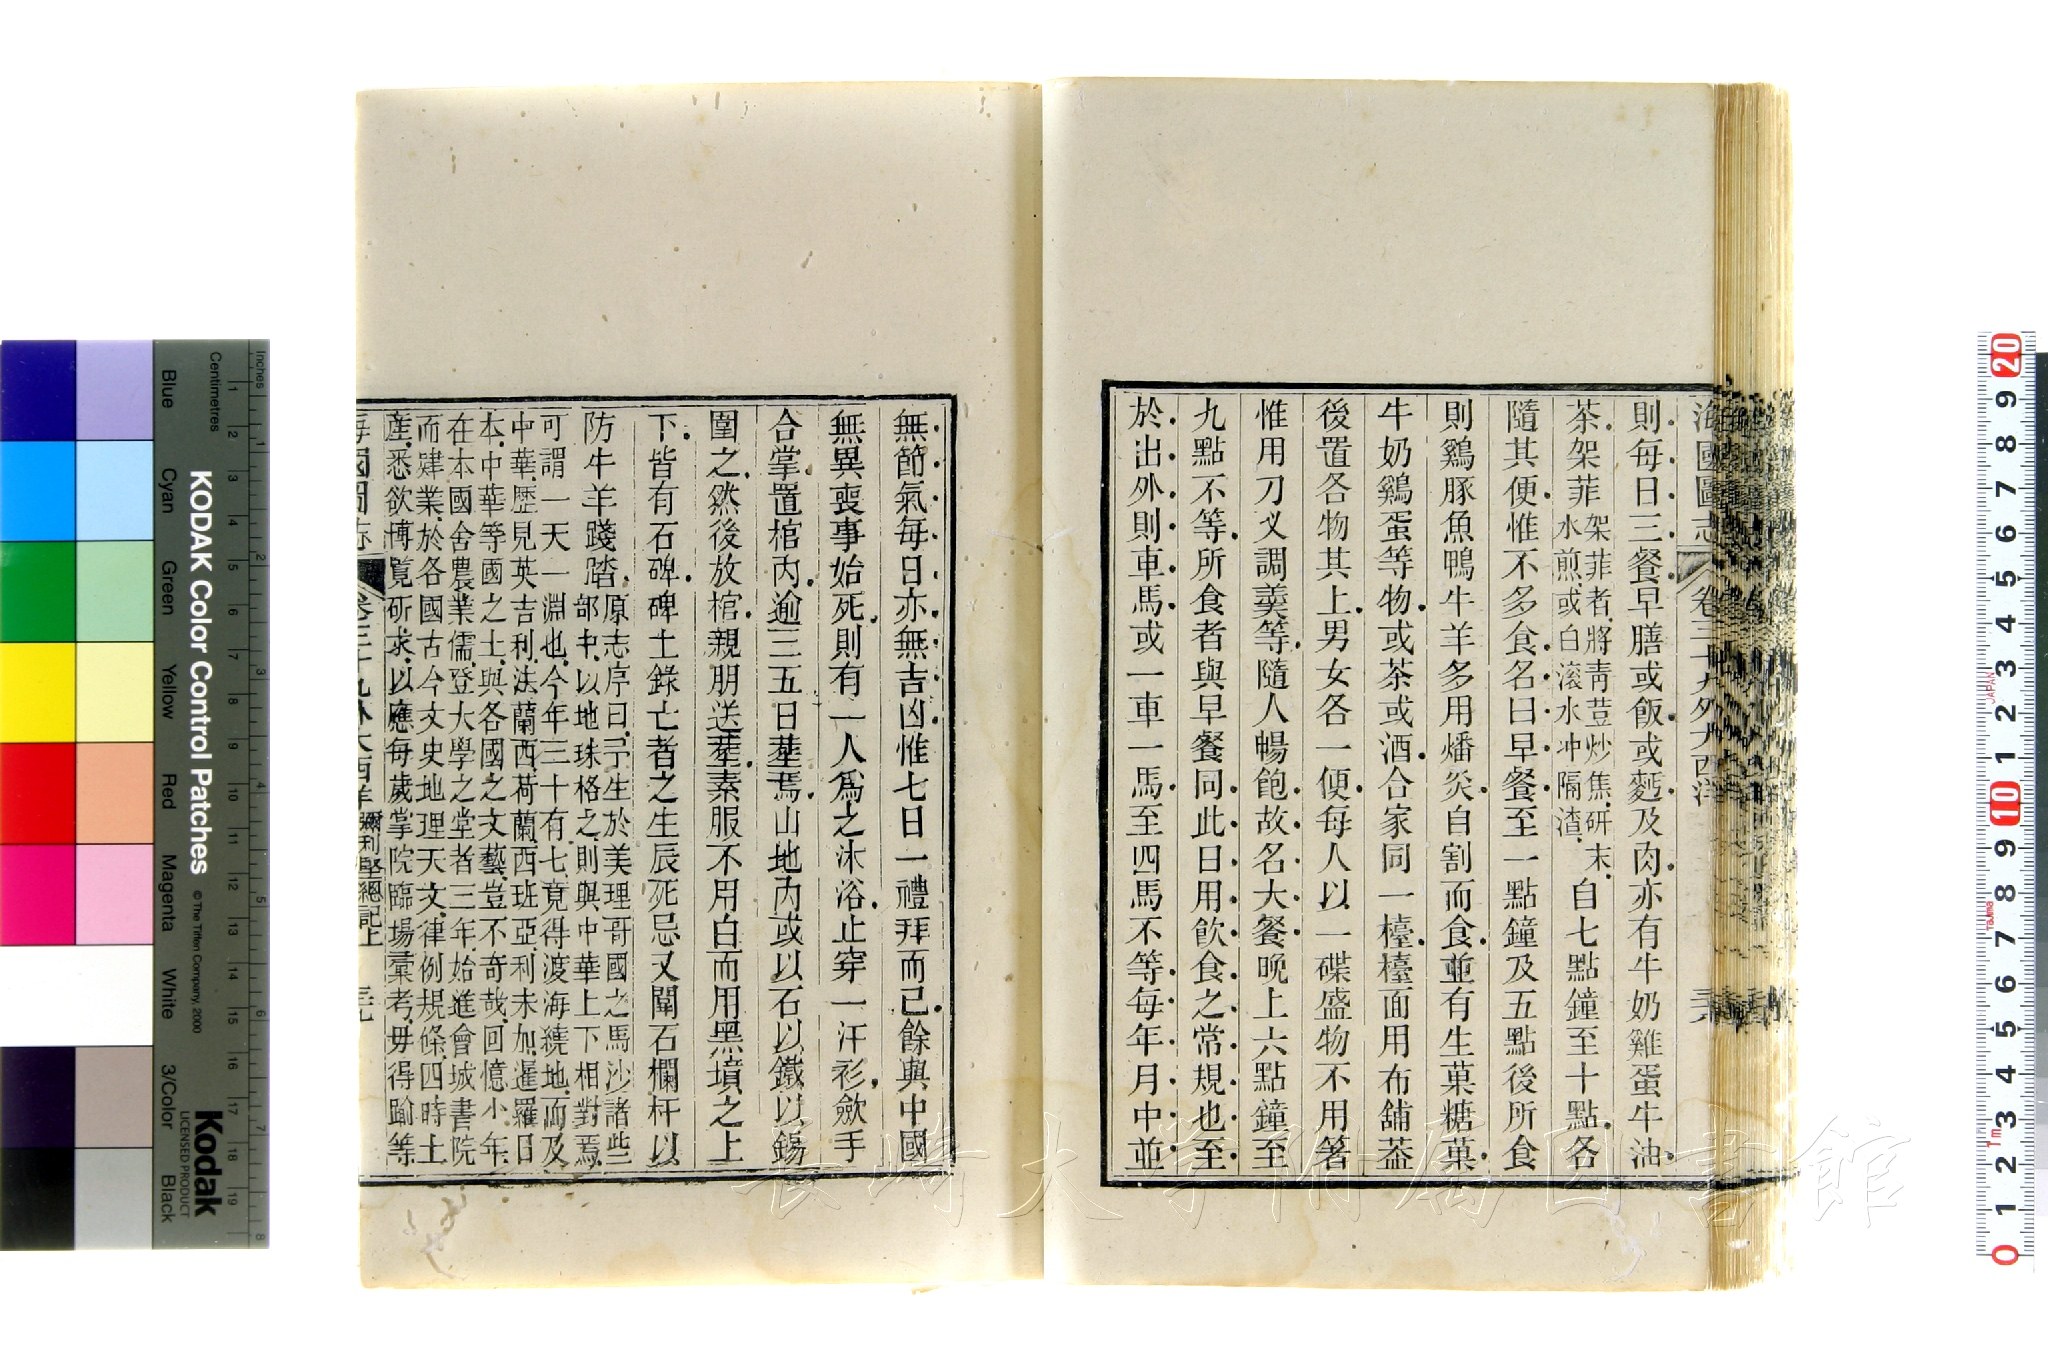 海國圖志 卷三十九外大西洋
則每日三餐早膳或飯或麪及肉亦有牛奶雞蛋牛油
茶架菲架菲者將靑荳炒焦研末水煎或白滾水冲隔渣自七點鐘至十點各
隨其便惟不多食名曰早餐至一點鐘及五點後所食
則鷄豚魚鴨牛羊多用燔炙自割而食並有生菓糖菓
牛奶鷄蛋等物或茶或酒合家同一檯檯面用布舖葢
後置各物其上男女各一便每人以一碟盛物不用箸
惟用刀义調羹等隨人暢飽故名大餐晚上六點鐘至
九點不等所食者與早餐同此日用飲食之常規也至
於出外則車馬或一車一馬至四馬不等每年月中並
無節氣每日亦無吉凶惟七日一禮拜而已餘與中國
無異喪事始死則有一人爲之沐浴止穿一汗衫歛手
合掌置棺內逾三五日塟焉山地內或以石以鐵以錫
圍之然後放棺親朋送塟素服不用白而用黑墳之上
下皆有石碑碑土錄亡者之生辰死忌又闌石欄杆以
防牛羊踐踏原志序曰予生於美理哥國之馬沙諸些
部中以地珠格之則與中華上下相對焉
可謂一天一淵也今年三十有七竟得渡海繞地而及
中華歷見英吉利法蘭西荷蘭西班亞利未加暹羅日
本中華等國之士與各國之文藝豈不奇哉回憶小年
在本國舍農業儒登大學之堂者三年始進會城書院
而肄業於各國古今文史地理天文律例規條四時土
產悉欲博覧硏求以應每歲掌院臨場彙考毋得踰等
海國圖志 卷三十九外大西洋 彌利堅總記上 三七
KODAK Color Control Patches
© The Tiffen Company, 2000
Kodak
LICENSED PRODUCT
Inches
Centimetres
Blue
Cyan
Green
Yellow
Red
Magenta
White
3/Color
Black
長崎大学附属図書館